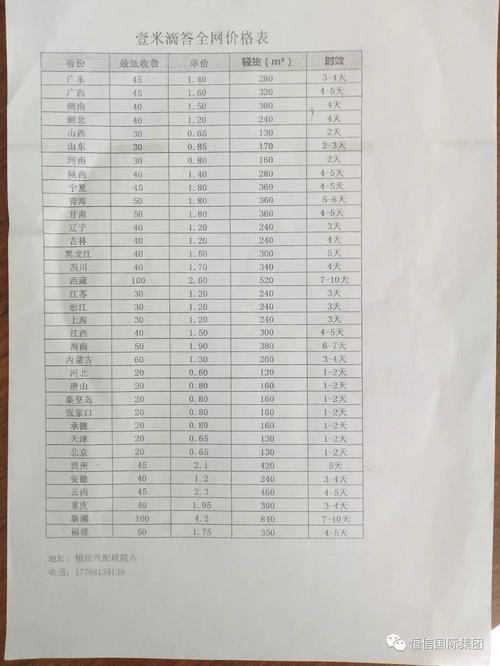 壹米滴答全网价格表
省份 最低收费 单价 轻货（m³） 时效
广东 45 1.40 280 3-4天
广西 45 1.60 320 4-5天
湖南 40 1.50 300 4天
湖北 40 1.20 240 4天
山西 30 0.65 130 2天
山东 30 0.85 170 2-3天
河南 30 0.80 160 2天
陕西 40 1.40 280 4-5天
宁夏 45 1.80 360 4-5天
青海 50 1.80 360 5-6天
甘肃 50 1.80 360 4-5天
辽宁 40 1.20 240 3天
吉林 40 1.20 240 4天
黑龙江 40 1.50 300 5天
四川 40 1.70 340 4天
西藏 100 2.60 520 7-10天
江苏 30 1.20 240 3天
浙江 30 1.20 240 3天
上海 30 1.20 240 3天
江西 40 1.50 300 4-5天
海南 50 1.90 380 6-7天
内蒙古 60 1.30 260 3-4天
河北 20 0.60 120 1-2天
唐山 20 0.80 160 1-2天
秦皇岛 20 0.80 160 1-2天
张家口 20 0.80 160 1-2天
承德 20 0.80 160 1-2天
天津 20 0.65 130 1-2天
北京 20 0.65 130 1-2天
贵州 45 2.1 420 5天
安徽 40 1.2 240 3-4天
云南 45 2.3 460 4-5天
重庆 40 1.95 390 3-4天
新疆 100 4.2 840 7-10天
福建 50 1.75 350 4-5天
地址：恒信汽配城院内
电话：17798135139
恒信国际集团